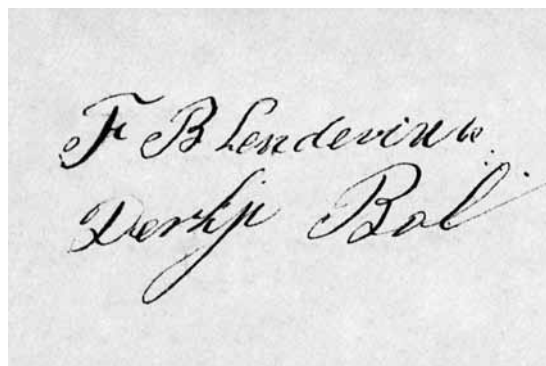 F B Lendevin
Derkje Bol